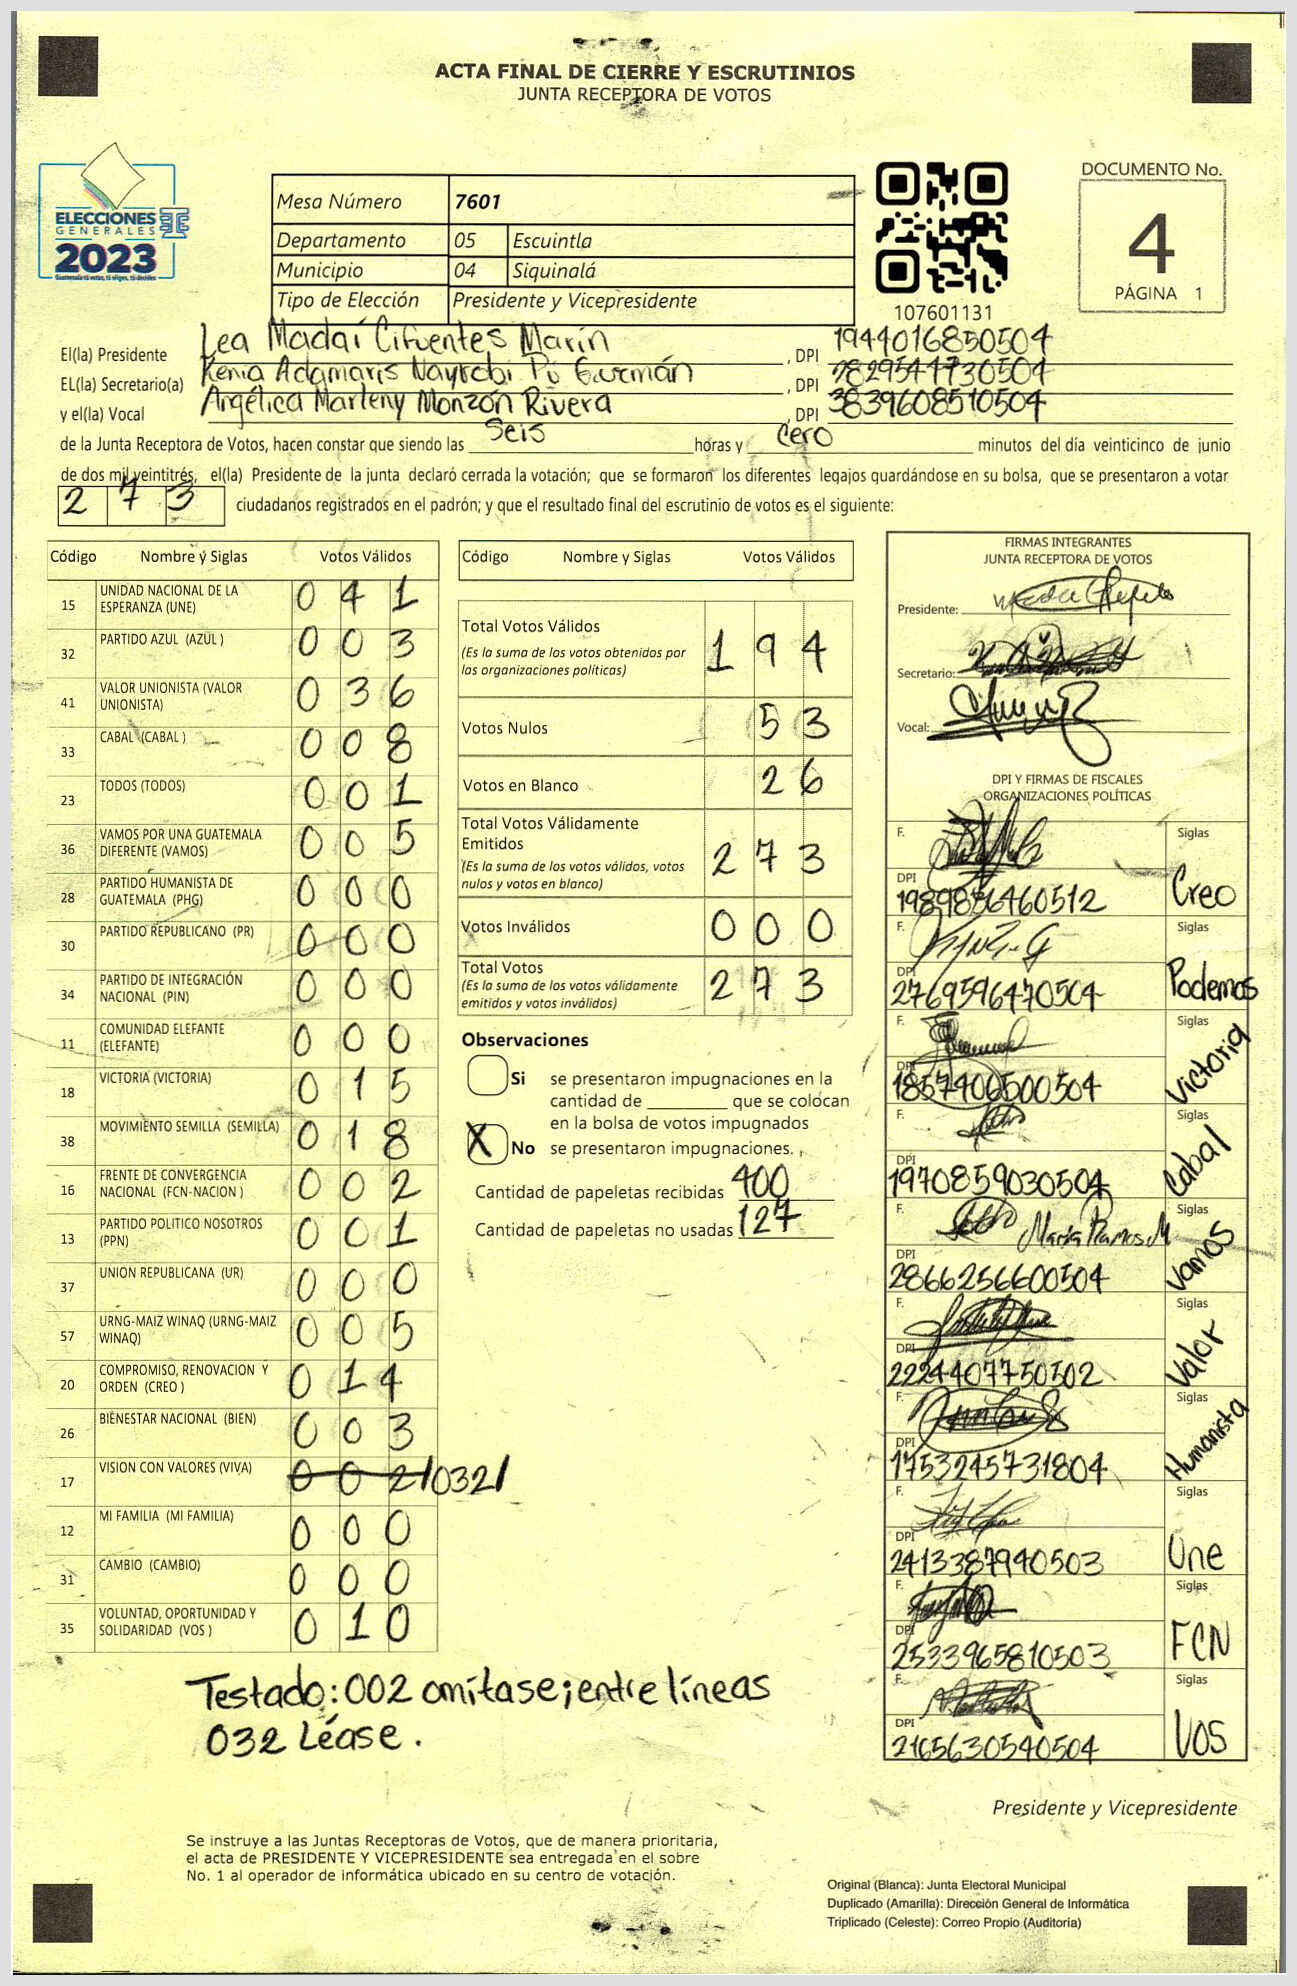 ACTA FINAL DE CIERRE Y ESCRUTINIOS
JUNTA RECEPTORA DE VOTOS
ELECCIONES
GENERALES
2023
Mesa Número 7601
Departamento 05 Escuintla
Municipio 04 Siquinalá
Tipo de Elección Presidente y Vicepresidente
107601131
DOCUMENTO No.
4
PÁGINA 1
El(la) Presidente Lea Madaí Cifuentes Marín , DPI 1944016850504
EL(la) Secretario(a) Kenia Adamaris Nayrobi Pú Guzmán , DPI 2829544730504
y el(la) Vocal Angélica Marleny Monzón Rivera , DPI 3839608510504
de la Junta Receptora de Votos, hacen constar que siendo las Seis horas y Cero minutos del día veinticinco de junio
de dos mil veintitrés, el(la) Presidente de la junta declaró cerrada la votación; que se formaron los diferentes legajos guardándose en su bolsa, que se presentaron a votar
2 7 3 ciudadanos registrados en el padrón; y que el resultado final del escrutinio de votos es el siguiente:
Código Nombre y Siglas Votos Válidos
15 UNIDAD NACIONAL DE LA ESPERANZA (UNE) 0 4 1
32 PARTIDO AZUL (AZUL ) 0 0 3
41 VALOR UNIONISTA (VALOR UNIONISTA) 0 3 6
33 CABAL (CABAL ) 0 0 8
23 TODOS (TODOS) 0 0 1
36 VAMOS POR UNA GUATEMALA DIFERENTE (VAMOS) 0 0 5
28 PARTIDO HUMANISTA DE GUATEMALA (PHG) 0 0 0
30 PARTIDO REPUBLICANO (PR) 0 0 0
34 PARTIDO DE INTEGRACIÓN NACIONAL (PIN) 0 0 0
11 COMUNIDAD ELEFANTE (ELEFANTE) 0 0 0
18 VICTORIA (VICTORIA) 0 1 5
38 MOVIMIENTO SEMILLA (SEMILLA) 0 1 8
16 FRENTE DE CONVERGENCIA NACIONAL (FCN-NACION ) 0 0 2
13 PARTIDO POLITICO NOSOTROS (PPN) 0 0 1
37 UNION REPUBLICANA (UR) 0 0 0
57 URNG-MAIZ WINAQ (URNG-MAIZ WINAQ) 0 0 5
20 COMPROMISO, RENOVACION Y ORDEN (CREO ) 0 1 4
26 BIENESTAR NACIONAL (BIEN) 0 0 3
17 VISION CON VALORES (VIVA) 0 0 2/032/
12 MI FAMILIA (MI FAMILIA) 0 0 0
31 CAMBIO (CAMBIO) 0 0 0
35 VOLUNTAD, OPORTUNIDAD Y SOLIDARIDAD (VOS ) 0 1 0
Testado: 002 omitase; entre líneas
032 Léase.
Código Nombre y Siglas Votos Válidos
Total Votos Válidos 1 9 4
(Es la suma de los votos obtenidos por
las organizaciones políticas)
Votos Nulos 5 3
Votos en Blanco 2 6
Total Votos Válidamente
Emitidos 2 7 3
(Es la suma de los votos válidos, votos
nulos y votos en blanco)
Votos Inválidos 0 0 0
Total Votos 2 7 3
(Es la suma de los votos válidamente
emitidos y votos inválidos)
Observaciones
Si se presentaron impugnaciones en la
cantidad de ________ que se colocan
en la bolsa de votos impugnados
X No se presentaron impugnaciones.
Cantidad de papeletas recibidas 400
Cantidad de papeletas no usadas 127
FIRMAS INTEGRANTES
JUNTA RECEPTORA DE VOTOS
Presidente:
Secretario:
Vocal:
DPI Y FIRMAS DE FISCALES
ORGANIZACIONES POLÍTICAS
F. Siglas
DPI 1989836460512 Creo
F. Siglas
DPI 2769596470504 Podemos
F. Siglas
DPI 1857406500504 Victoria
F. Siglas
DPI 1970859030504 Cabal
F. María Ramos M Siglas
DPI 2866256600504 Vamos
F. Siglas
DPI 2224407750502 Valor
F. Siglas
DPI 1753245731804 Humanista
F. Siglas
DPI 2413387940503 Une
F. Siglas
DPI 2533965810503 FCN
F. Siglas
DPI 2165630540504 VOS
Presidente y Vicepresidente
Se instruye a las Juntas Receptoras de Votos, que de manera prioritaria,
el acta de PRESIDENTE Y VICEPRESIDENTE sea entregada en el sobre
No. 1 al operador de informática ubicado en su centro de votación.
Original (Blanca): Junta Electoral Municipal
Duplicado (Amarilla): Dirección General de Informática
Triplicado (Celeste): Correo Propio (Auditoría)